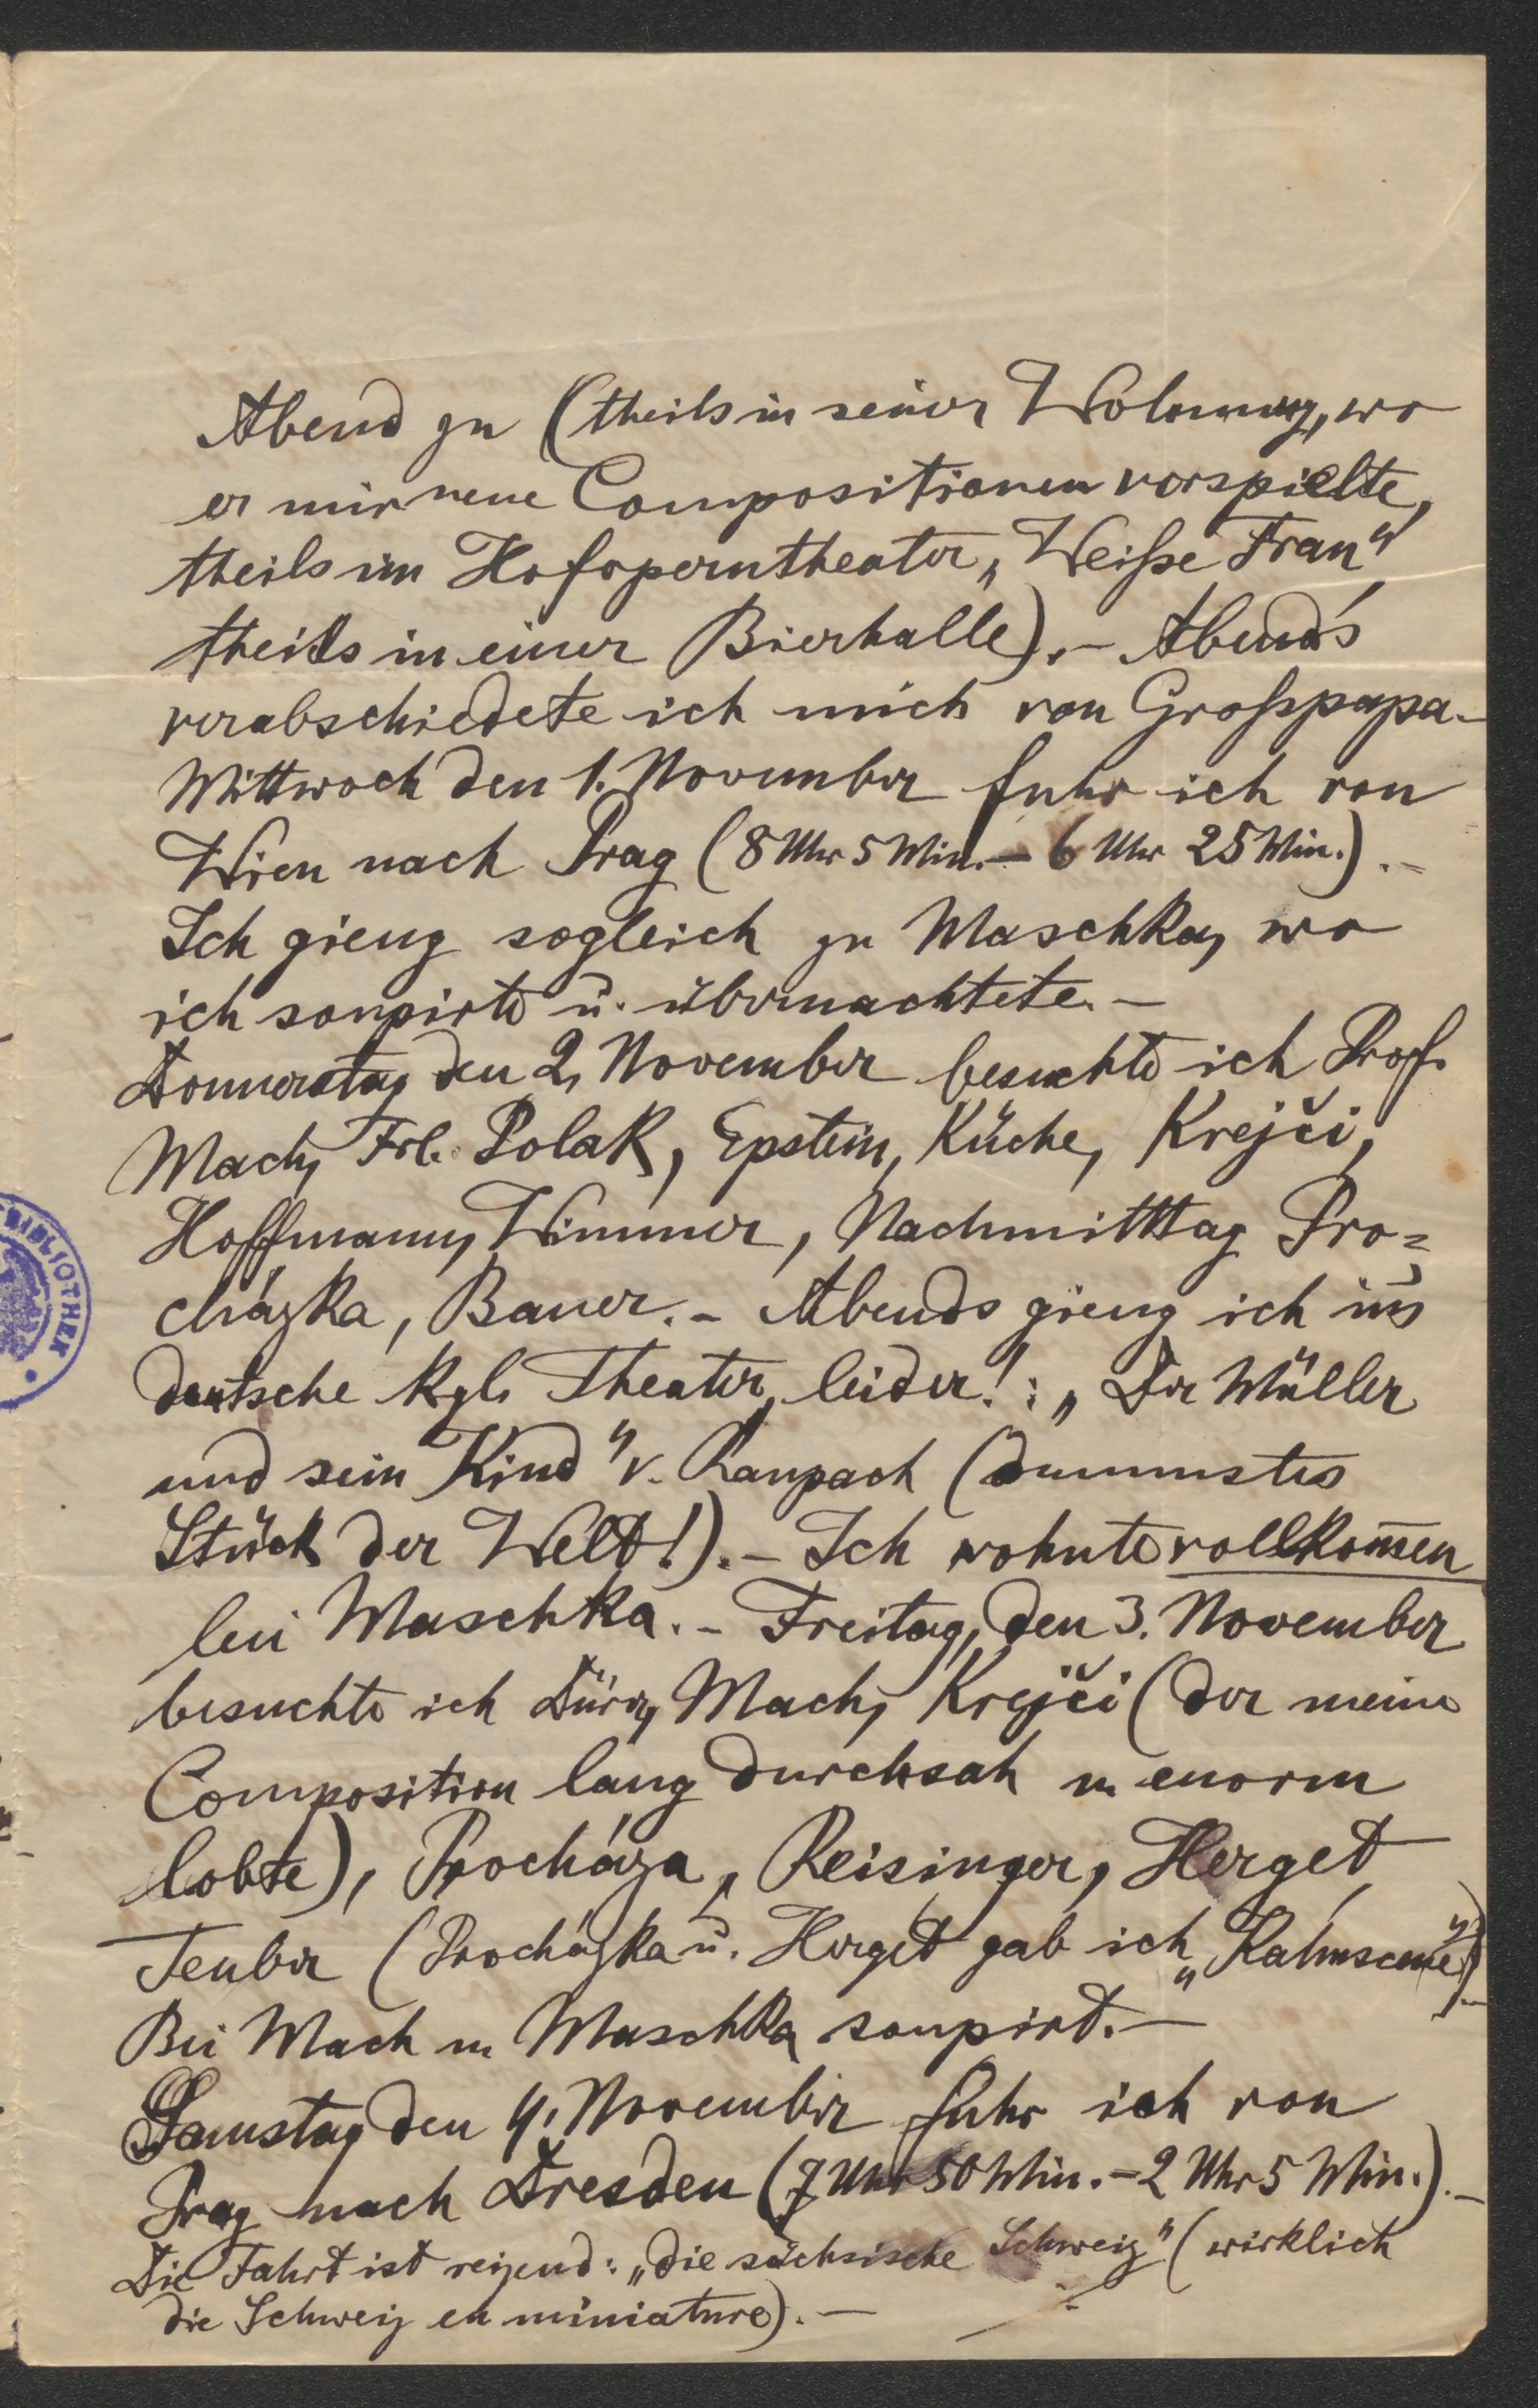 Abend zu (theils in seiner Wohnung, wo
er mir neue Compositionen vorspielte,
theils im Hofoperntheater „Weiße Frau"
theils in einer Bierhalle). – Abends
verabschiedete ich mich von Großpapa. –
Mittwoch den 1. November fuhr ich von
Wien nach Prag (8 Uhr 5 Min. – 6 Uhr 25 Min.). –
Ich gieng sogleich zu Maschka, wo
ich soupirte u. übernachtete. –
Donnerstag den 2. November besuchte ich Prof.
Mach, Frl. Polak, Epstein, Küche, Krejči,
Hoffmann, Wimmer, Nachmitttag Pro=
cházka, Bauer. – Abends gieng ich ins
deutsche kgl. Theater, leider!: „Der Müller
und sein Kind" v. Raupach (dummstes
Stück der Welt!). – Ich wohnte vollkom̄en
bei Maschka. – Freitag, den 3. November
besuchte ich Dürr, Mach, Krejči (der meine
Composition lang durchsah u. enorm
lobte), Procháza, Reisinger, Herget,
Teuber (Procházka u. Herget gab ich „Kahnscene").–
Bei Mach u. Maschka soupirt. –
Samstag den 4. November fuhr ich von
Prag nach Dresden (7 Uhr 50 Min. – 2 Uhr 5 Min.). –
Die Fahrt ist reizend: „die sächsische Schweiz" (wirklich
die Schweiz en miniature). –
BIBLIOTHEK